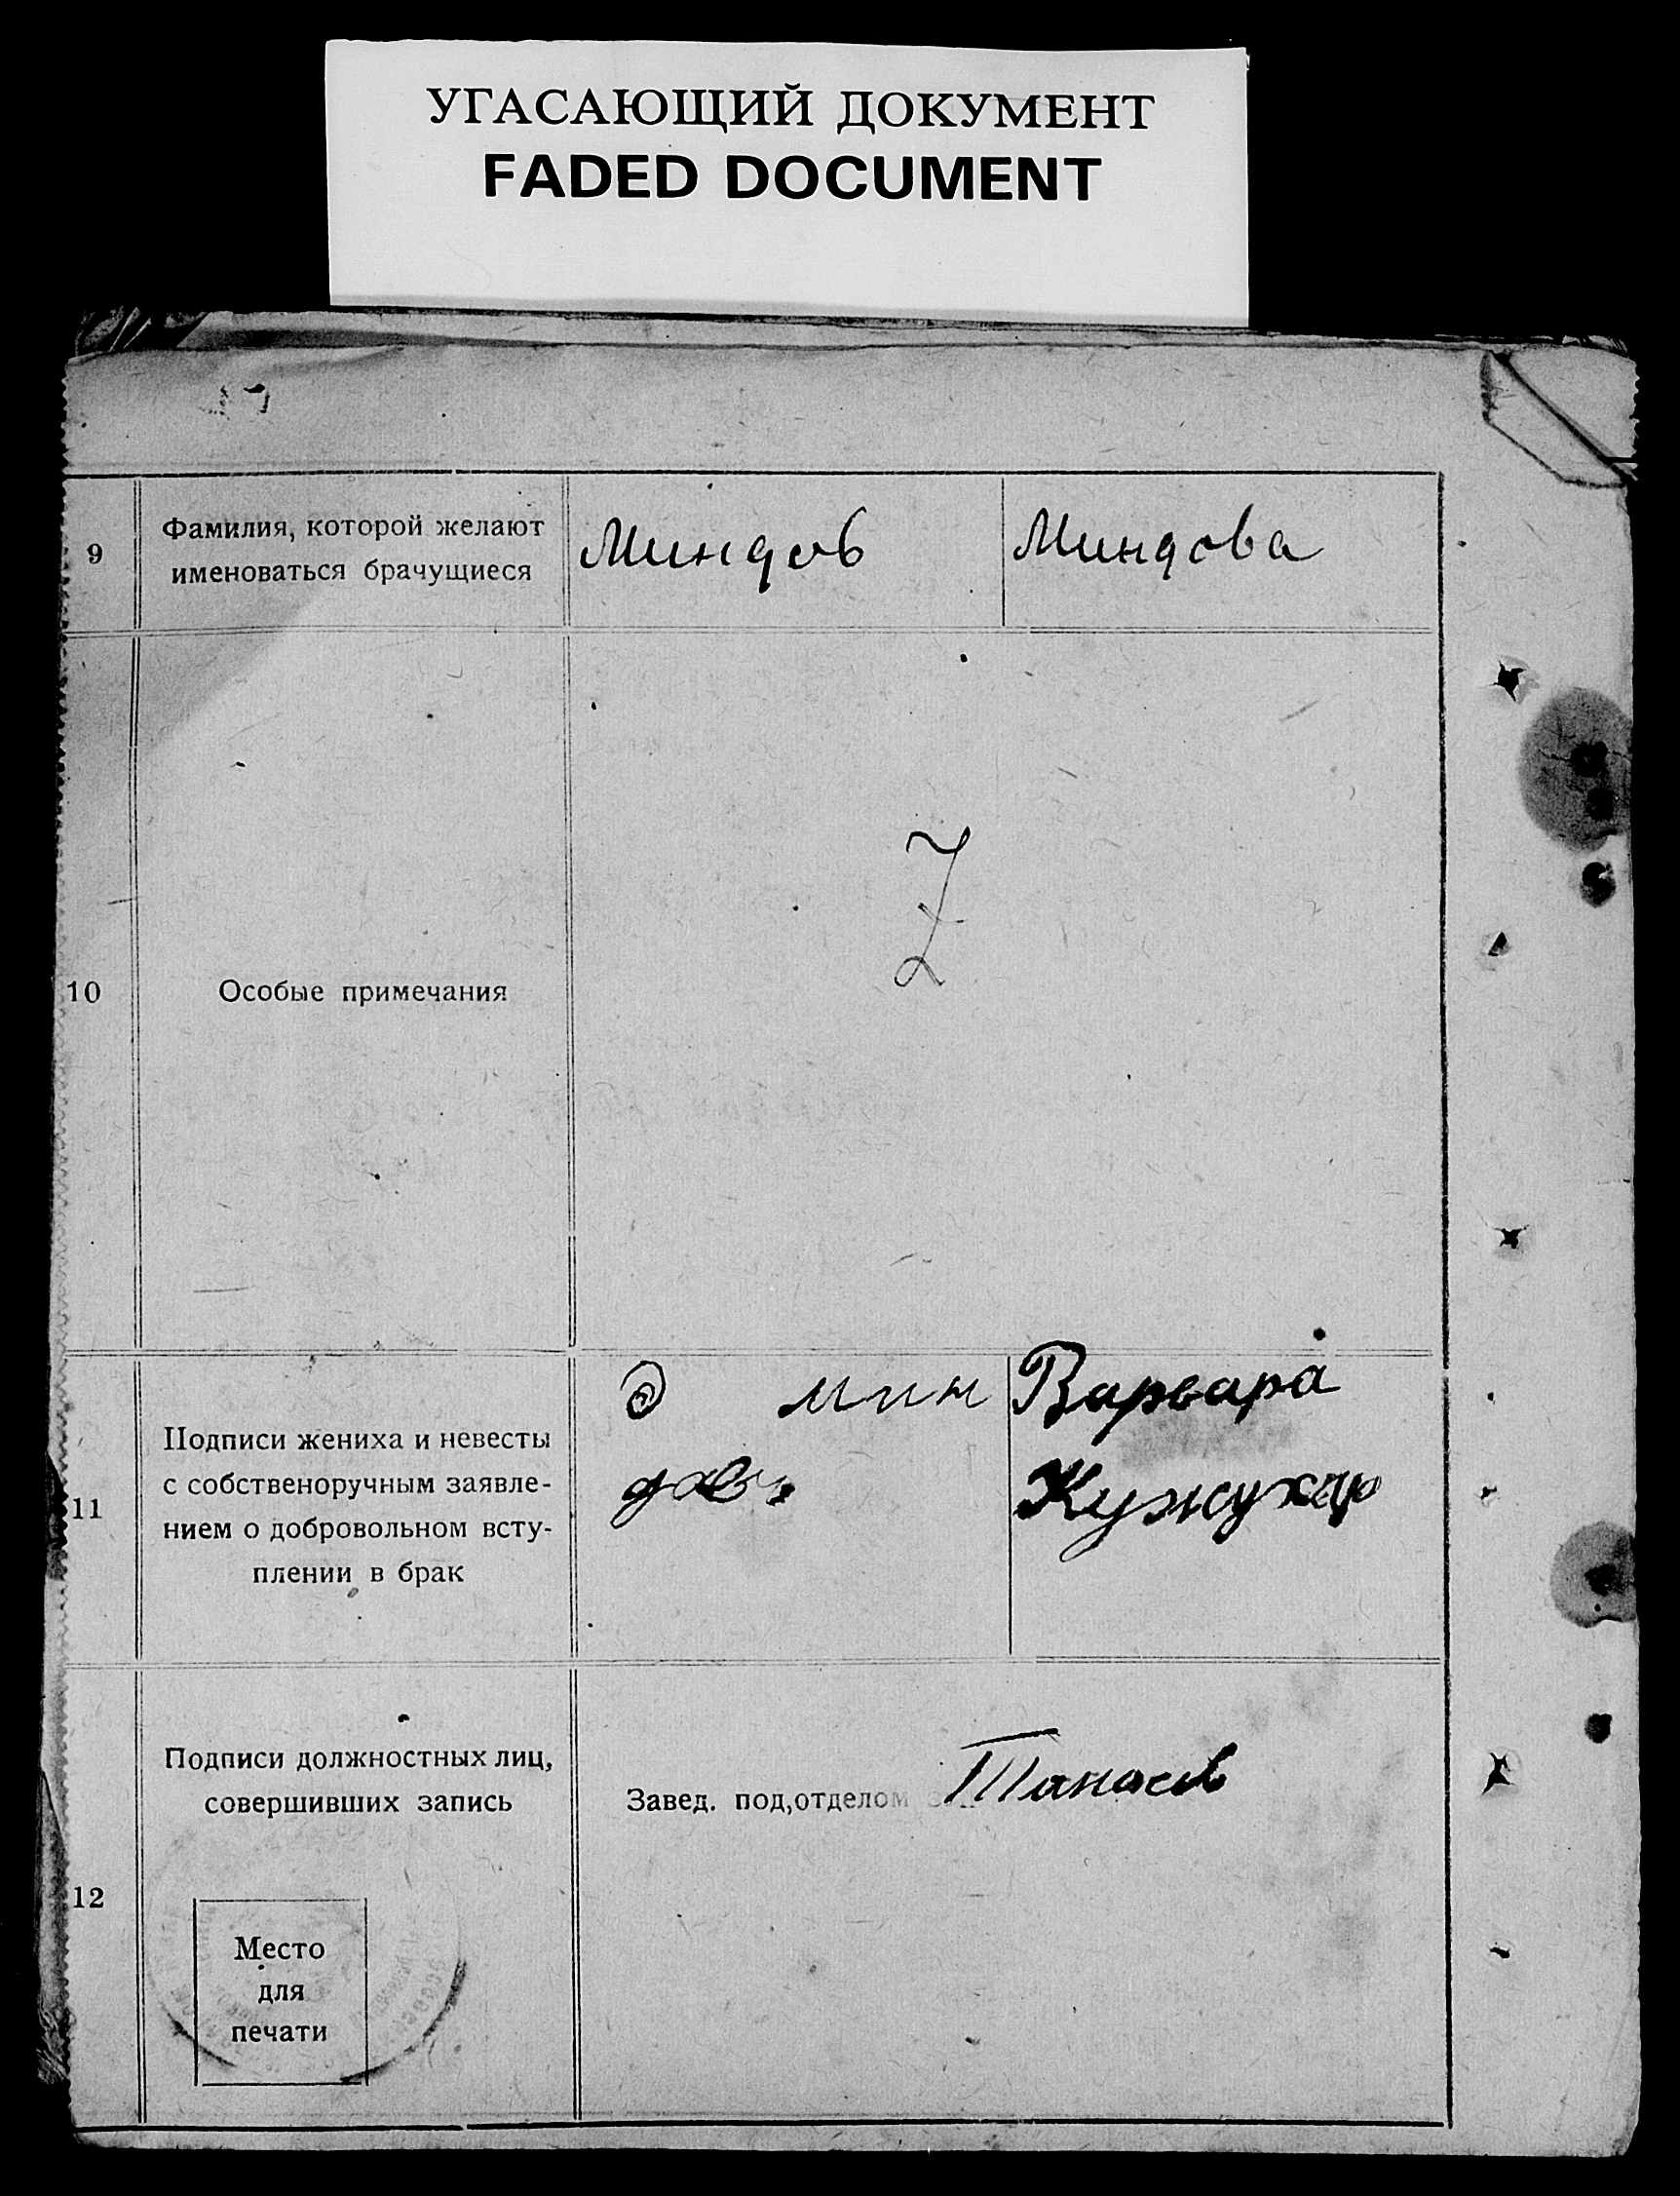 УГАСАЮЩИЙ ДОКУМЕНТ
FADED DOCUMENT
9
Фамилия, которой желают
именоваться брачущиеся
Миндов
Миндова
10
Особые примечания
Z
11
Подписи жениха и невесты
с собственоручным заявле-
нием о добровольном всту-
плении в брак
д мин
дов
Варвара
Кужухар
12
Подписи должностных лиц,
совершивших запись
Завед. под,отделом
Танасев
Место
для
печати